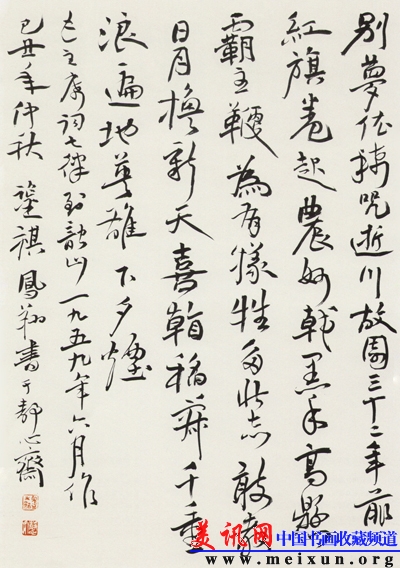 别夢依稀咒逝川故園三十二年前
紅旗卷起農奴戟黑手高懸
霸主鞭為有犧牲多壯志敢教
日月換新天喜看稻菽千重
浪遍地英雄下夕煙
毛主席詞七律到韶山一九五九年六月作
己丑年仲秋 祺鳳翔書于靜心齋
美讯网 中国书画收藏频道
www.meixun.org